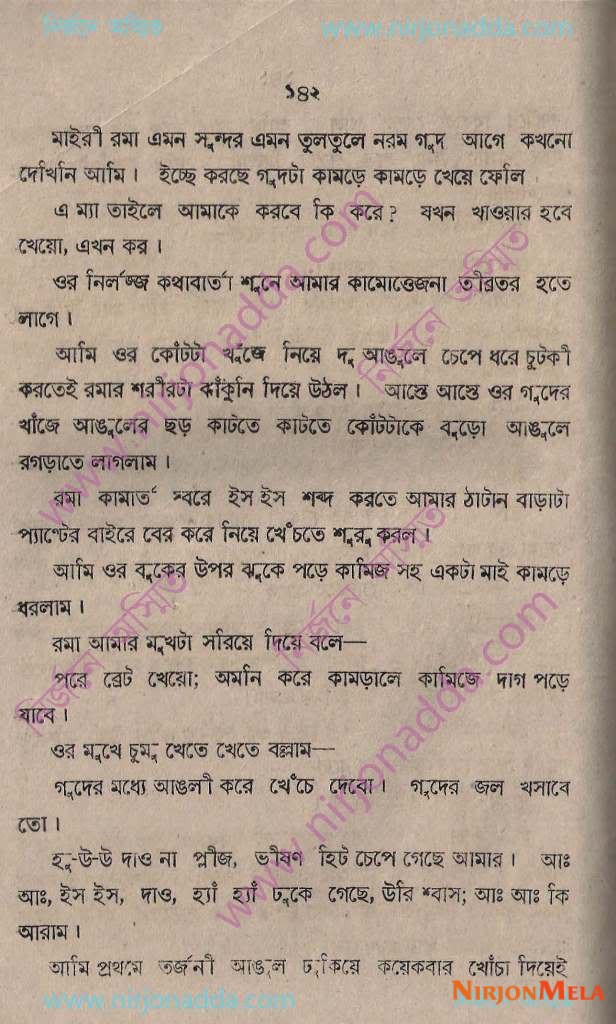 নির্জনে অস্মিত www.nirjonadda.com
১৪২
মাইরী রমা এমন সুন্দর এমন তুলতুলে নরম গুদ আগে কখনো
দেখিনি আমি। ইচ্ছে করছে গুদটা কামড়ে কামড়ে খেয়ে ফেলি
এ ম্যা তাইলে আমাকে করবে কি করে? যখন খাওয়ার হবে
খেয়ো, এখন কর।
ওর নির্লজ্জ কথাবার্তা শুনে আমার কামোত্তেজনা তীব্রতর হতে
লাগে।
আমি ওর কোঁটটা খুঁজে নিয়ে দু আঙুলে চেপে ধরে চুটকী
করতেই রমার শরীরটা ঝাঁকুনি দিয়ে উঠল। আস্তে আস্তে ওর গুদের
খাঁজে আঙুলের ছড় কাটতে কাটতে কোঁটটাকে বুড়ো আঙুলে
রগড়াতে লাগলাম।
রমা কামার্ত স্বরে ইস ইস শব্দ করতে আমার ঠাটান বাড়াটা
প্যান্টের বাইরে বের করে নিয়ে খেঁচতে শুরু করল।
আমি ওর বুকের উপর ঝুকে পড়ে কামিজ সহ একটা মাই কামড়ে
ধরলাম।
রমা আমার মুখটা সরিয়ে দিয়ে বলে—
পরে ব্রেট খেয়ো; অমনি করে কামড়ালে কামিজে দাগ পড়ে
যাবে।
ওর মুখে চুমু খেতে খেতে বল্লাম—
গুদের মধ্যে আঙলী করে খেঁচে দেবো। গুদের জল খসাবে
তো।
হু-উ-উ দাও না প্লীজ, ভীষণ হিট চেপে গেছে আমার। আঃ
আঃ, ইস ইস, দাও, হ্যাঁ হ্যাঁ ঢুকে গেছে, উরি শ্বাস; আঃ আঃ কি
আরাম।
আমি প্রথমে তর্জনী আঙুল ঢুকিয়ে কয়েকবার খোঁচা দিয়েই
www.nirjonadda.com
নির্জনে অস্মিত
www.nirjonadda.com
নির্জনে অস্মিত
নির্জনে অস্মিত
www.nirjonadda.com
www.nirjonadda.com www.nirjonadda.com
NIRJONMELA